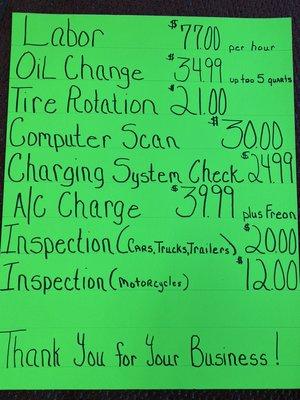 Labor $77.00 per hour
OiL Change $34.99 up too 5 quarts
Tire Rotation $21.00
Computer Scan $30.00
Charging System Check $24.99
A/C Charge $39.99 plus Freon
Inspection (Cars, Trucks, Trailers) $20.00
Inspection (Motorcycles) $12.00
Thank You for Your Business!